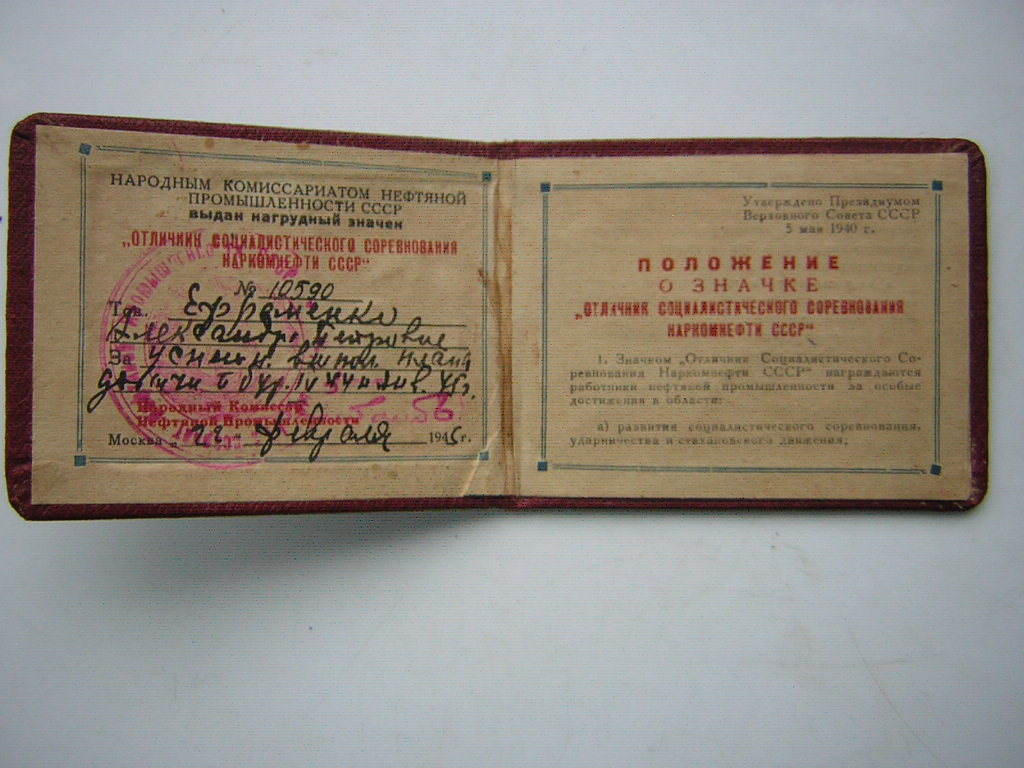 НАРОДНЫМ КОМИССАРИАТОМ НЕФТЯНОЙ
ПРОМЫШЛЕННОСТИ СССР
выдан нагрудный значек
„ОТЛИЧНИК СОЦИАЛИСТИЧЕСКОГО СОРЕВНОВАНИЯ
НАРКОМНЕФТИ СССР"
№ 10590
Тов. Ефременко
Александр Петрович
За успешн. выпол. плана
добычи
Народный Комиссар
Нефтяной Промышленности
Москва „ " февраля 194 г.
Утверждено Президиумом
Верховного Совета СССР
5 мая 1940 г.
ПОЛОЖЕНИЕ
О ЗНАЧКЕ
„ОТЛИЧНИК СОЦИАЛИСТИЧЕСКОГО СОРЕВНОВАНИЯ
НАРКОМНЕФТИ СССР"
1. Значком „Отличник Социалистического Со-
ревнования Наркомнефти СССР" награждаются
работники нефтяной промышленности за особые
достижения в области:
а) развития социалистического соревнования,
ударничества и стахановского движения;